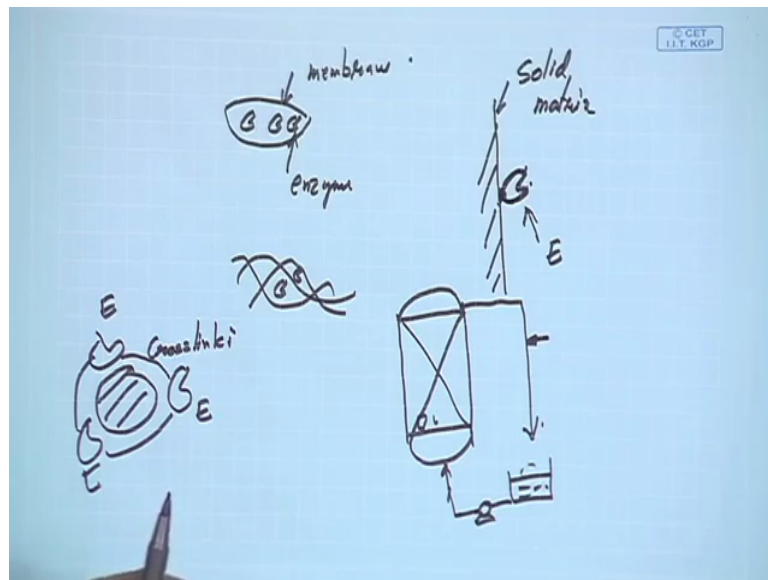 © CET
I.I.T. KGP
membraw
enzyme
Solid
matrix
E
E
Crosslinki
E
E